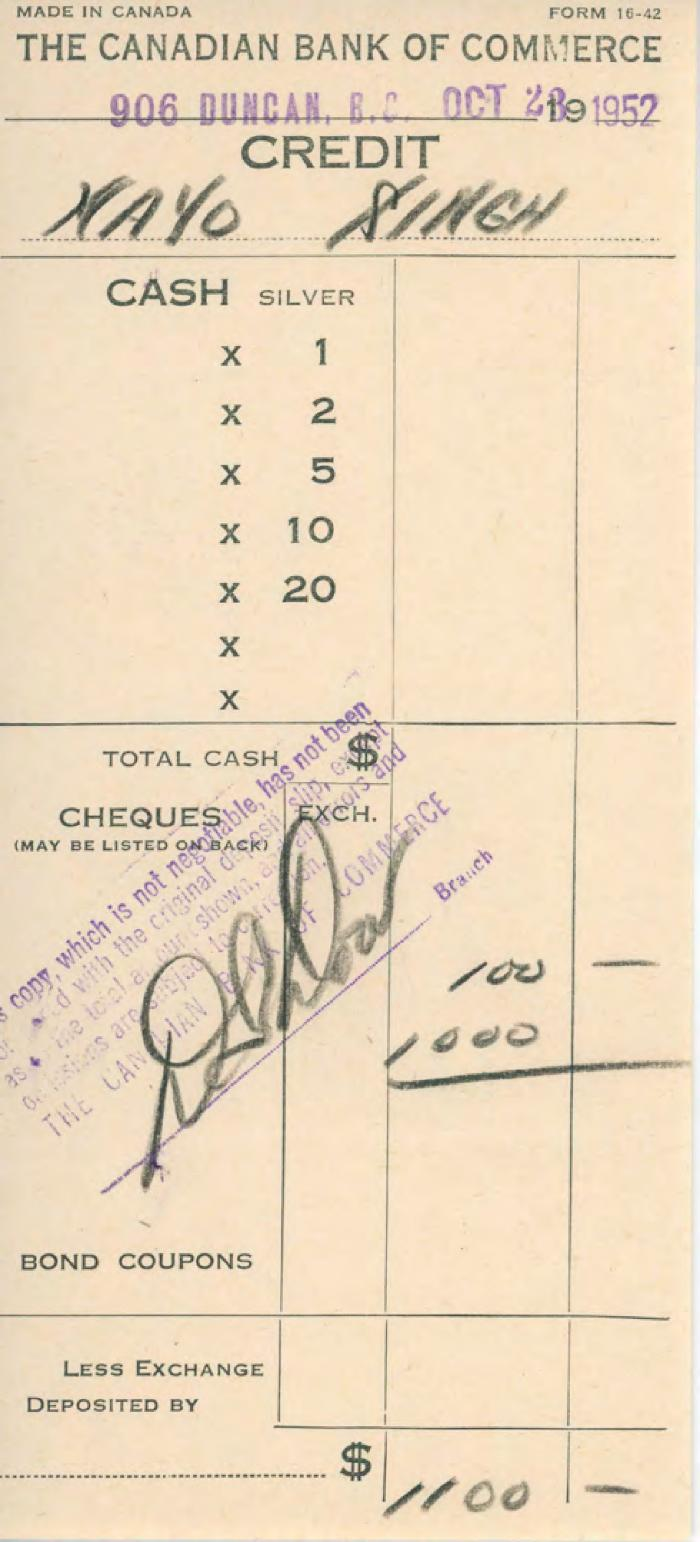 MADE IN CANADA FORM 16-42
THE CANADIAN BANK OF COMMERCE
906 DUNCAN, B.C. OCT 28 19 1952
CREDIT
MAYO SINGH
CASH SILVER
x 1
x 2
x 5
x 10
x 20
x
x
TOTAL CASH $
CHEQUES EXCH.
(MAY BE LISTED ON BACK)
copy, which is not negotiable, has not been
with the original deposit slip, except
as the total amount shown, and
are subject to
THE CANADIAN BANK OF COMMERCE
Branch
100 —
1000
BOND COUPONS
LESS EXCHANGE
DEPOSITED BY
$ 1100 —